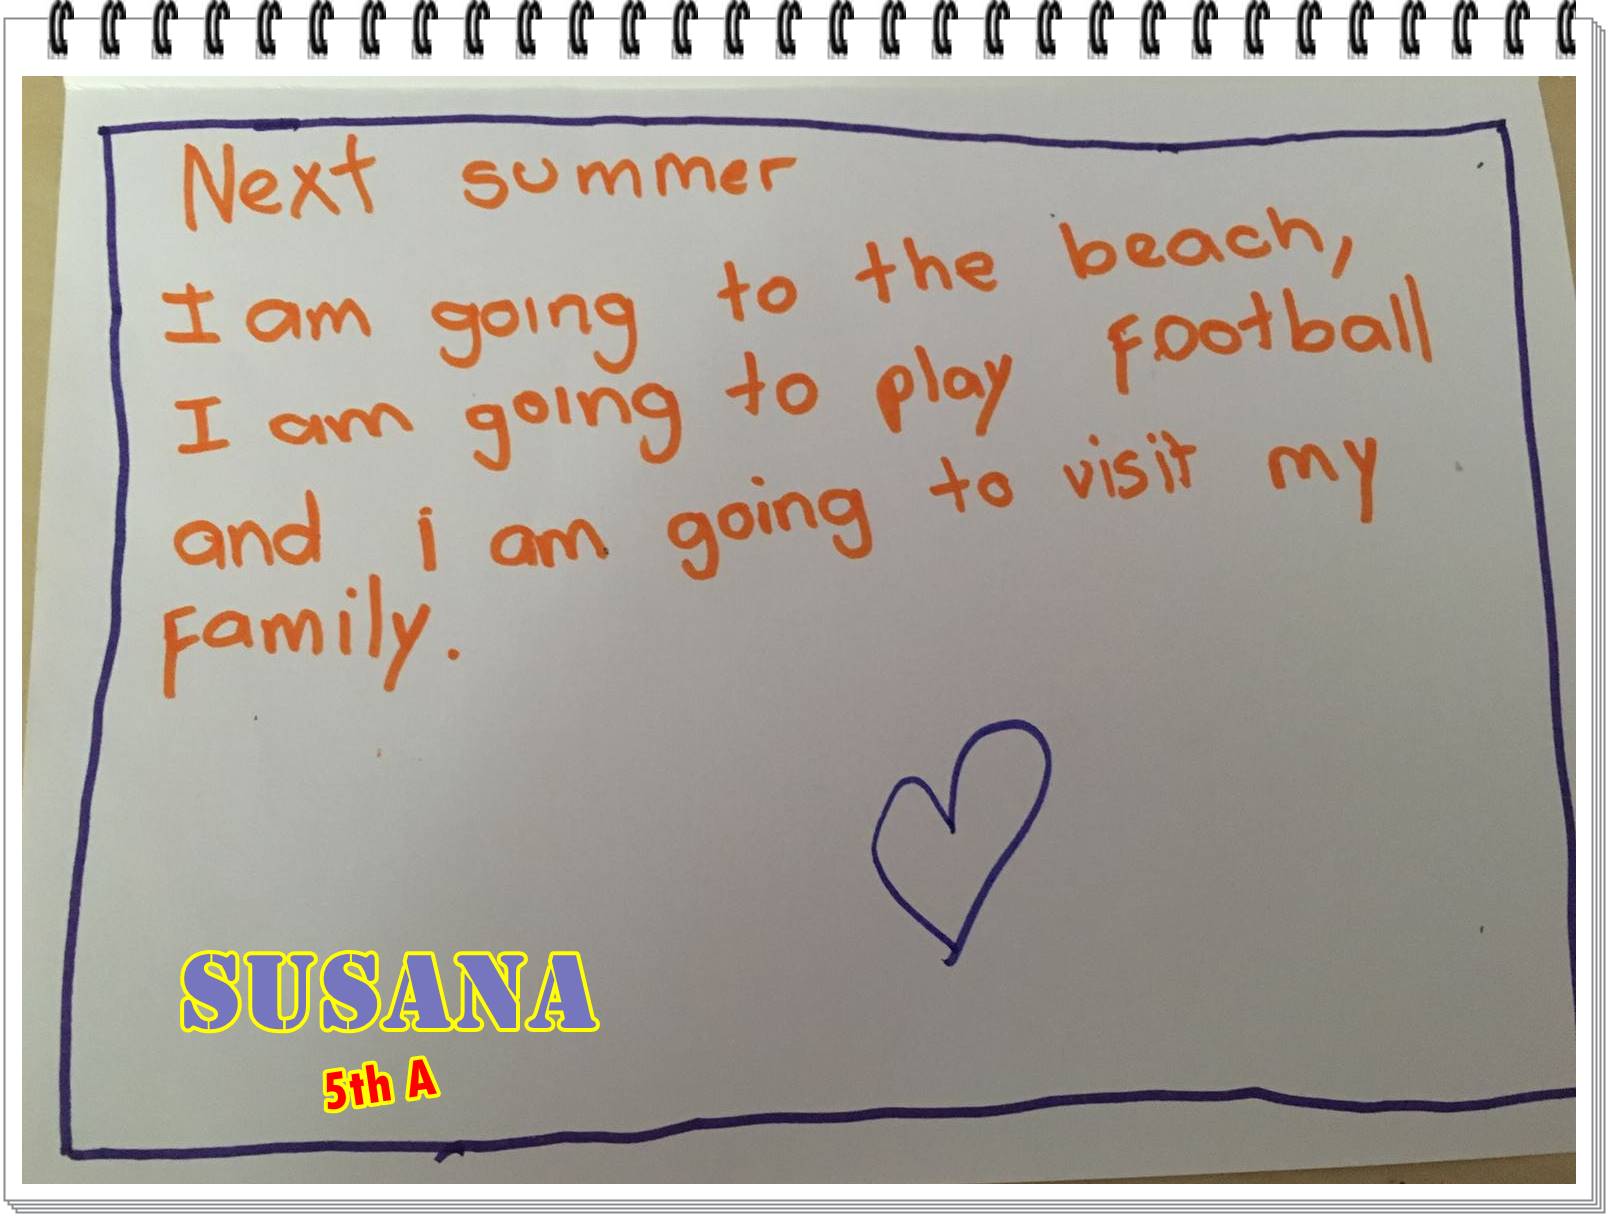 Next summer
I am going to the beach,
I am going to play football
and i am going to visit my
family.
SUSANA
5th A